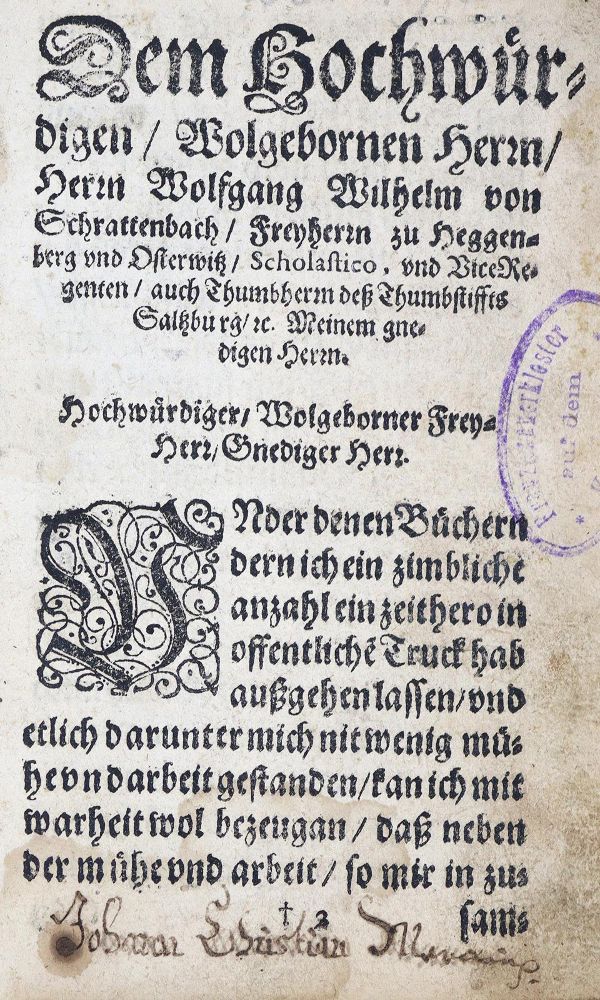 Dem Hochwür-
digen / Wolgebornen Herrn /
Herrn Wolfgang Wilhelm von
Schrattenbach / Freyherrn zu Heggen-
berg vnd Osterwitz / Scholastico, vnd ViceRe-
genten / auch Thumbherrn deß Thumbstiffts
Saltzburg / ꝛc. Meinem gne-
digen Herrn.
Hochwürdiger / Wolgeborner Frey-
Herr / Gnediger Herr.
VNder denen Büchern
dern ich ein zimbliche
anzahl ein zeithero in
offentlichẽ Truck hab
außgehen lassen / vnd
etlich darunter mich nit wenig mü-
he vnd arbeit gestanden / kan ich mit
warheit wol bezeugan / daß neben
der mühe vnd arbeit / so mir in zu-
† 2 sam-
Johann Christian
Franziskanerkloster
auf dem